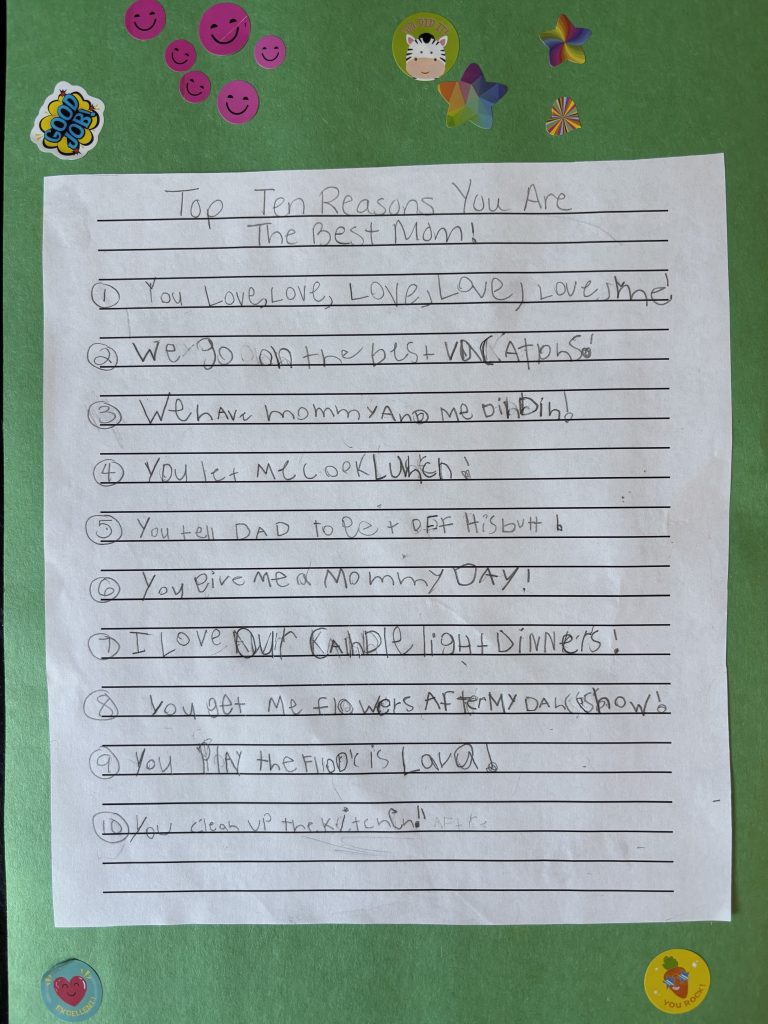 GOOD JOB!
YOU DID IT
Top Ten Reasons You Are
The Best Mom!
① You Love, Love, Love, Love, Love, Me!
② We go on the best VACAtions!
③ We hAve mommy AnD me DinDin!
④ You let me cook Lunch!
⑤ You tell DAD to get OFF His butt!
⑥ You give me a Mommy DAY!
⑦ I Love Our CanDle ligHt DINNers!
⑧ You get me flowers AfTer MY DANce show!
⑨ You PlAY the Flloor is Lava!
⑩ You clean UP the Kitchen!!
EXCELLENT!
YOU ROCK!